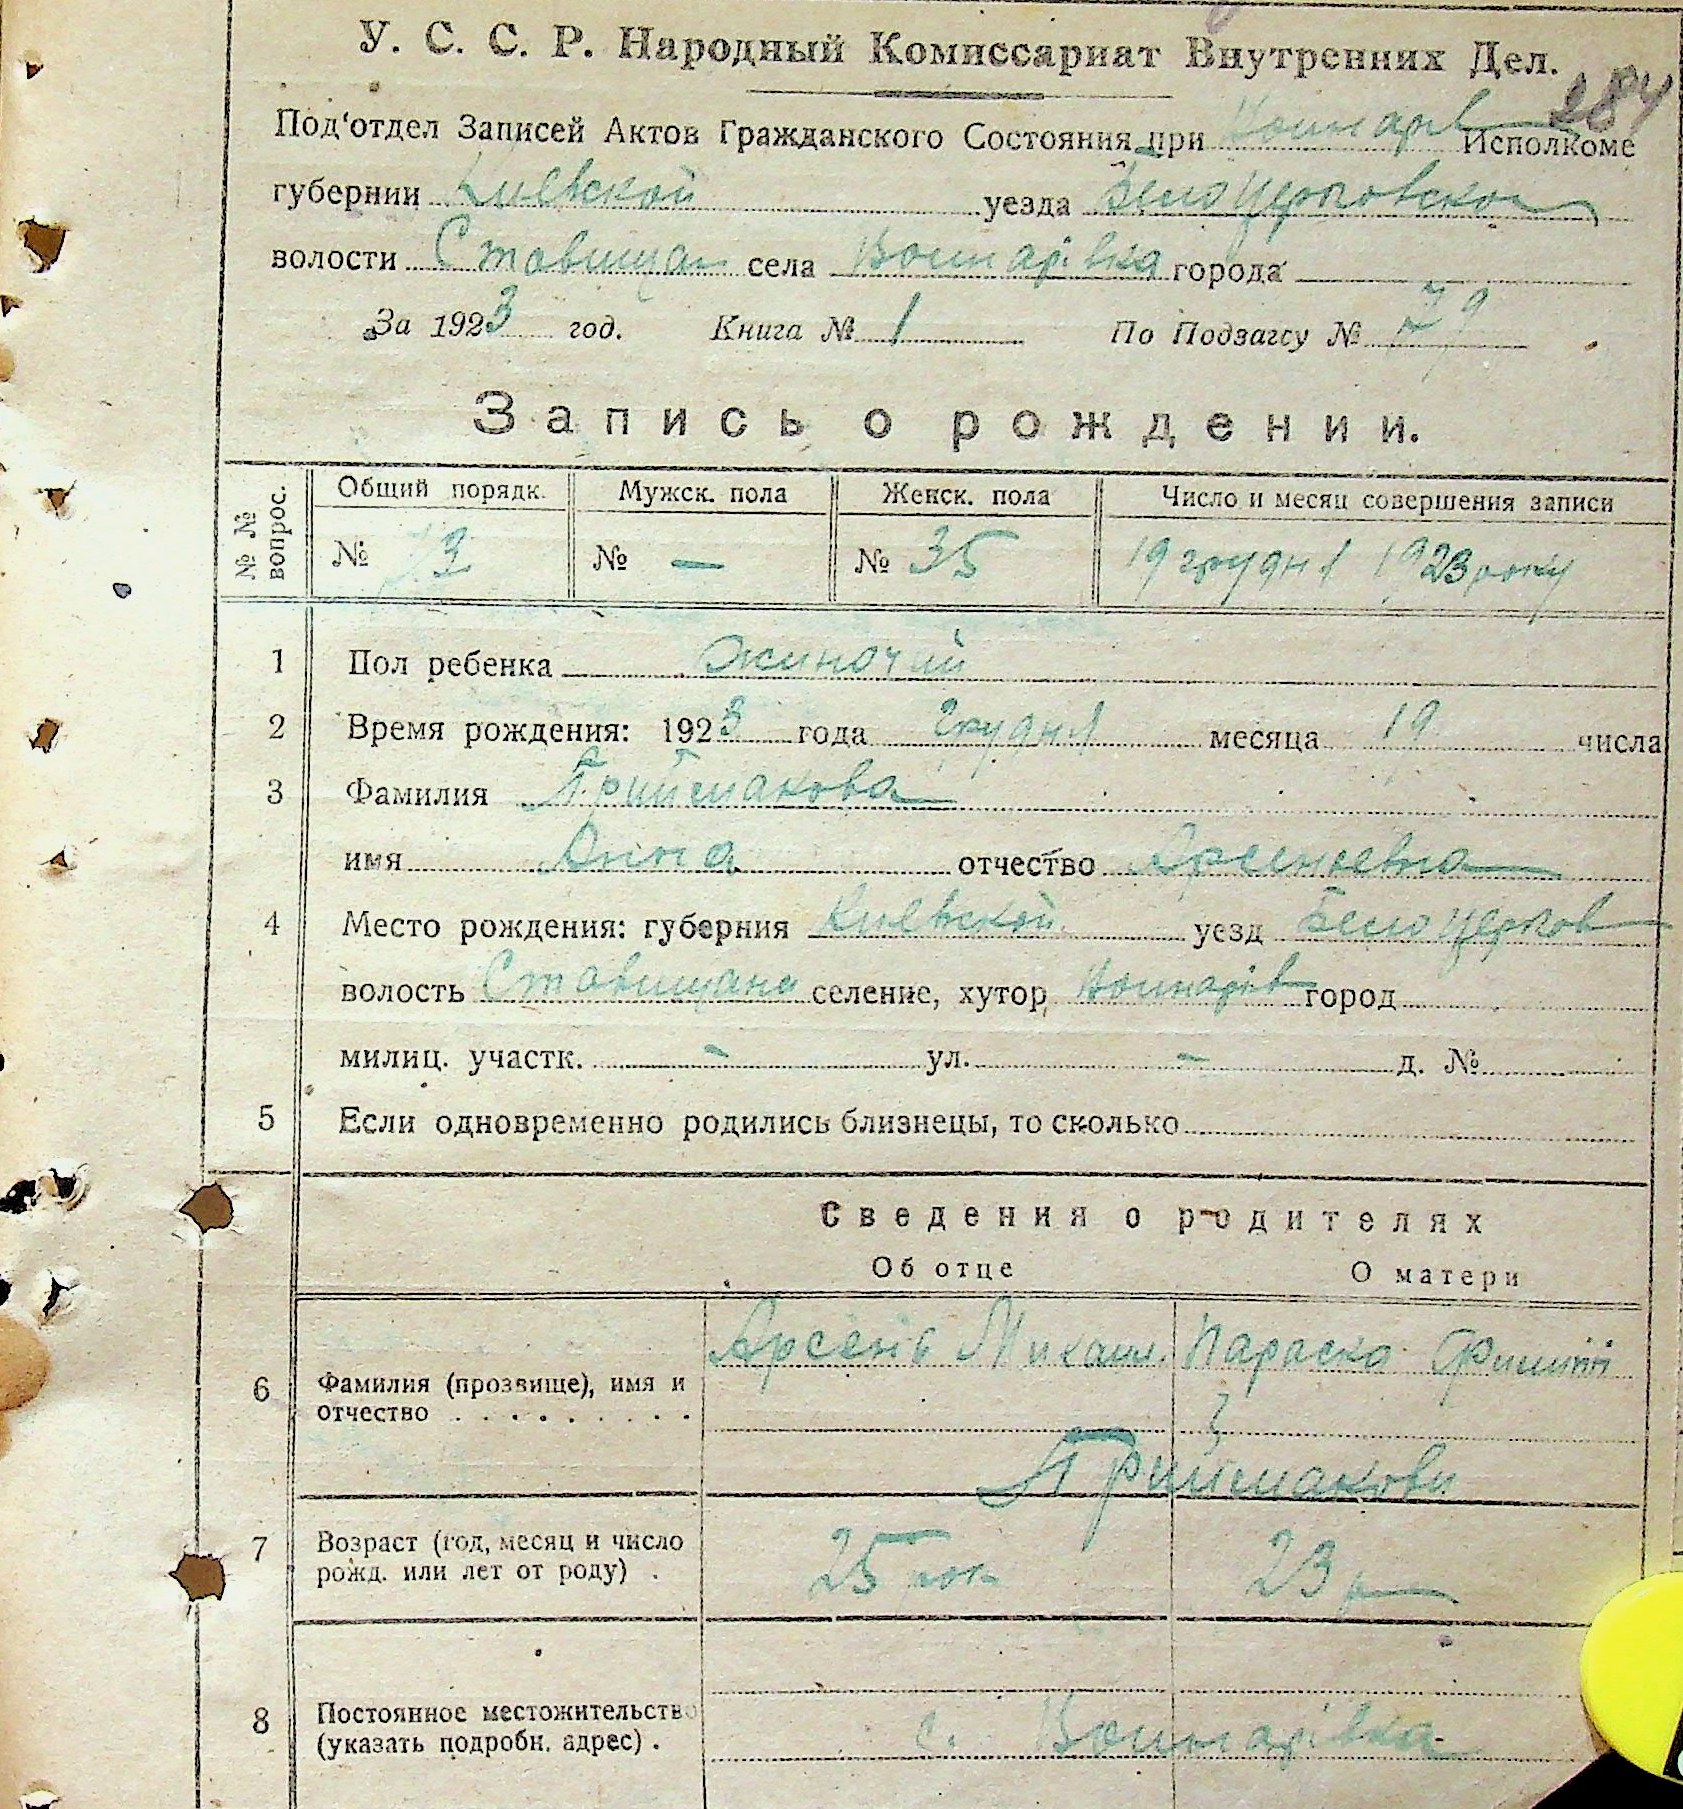 У. С. С. Р. Народный Комиссариат Внутренних Дел.
284
Под'отдел Записей Актов Гражданского Состояния при Исполкоме
губернии Киевской уезда Белоцерковской
волости Ставищан села города
За 1923 год. Книга № 1 По Подзагсу № 79
Запись о рождении.
№ № вопрос. Общий порядк. Мужск. пола Женск. пола Число и месяц совершения записи
№ 73 № — № 35 19 грудня 1923 року
1 Пол ребенка жиночий
2 Время рождения: 1923 года грудня месяца 19 числа
3 Фамилия Приймакова
имя Анна отчество Арсеньевна
4 Место рождения: губерния Киевской уезд Белоцерков
волость Ставищана селение, хутор город
милиц. участк. - ул. - д. №
5 Если одновременно родились близнецы, то сколько
Сведения о родителях
Об отце О матери
6 Фамилия (прозвище), имя и отчество Арсенів Михаил. Параска
Приймакови
7 Возраст (год, месяц и число рожд. или лет от роду) . 25 рок 23 р
8 Постоянное местожительство (указать подробн. адрес) . с.